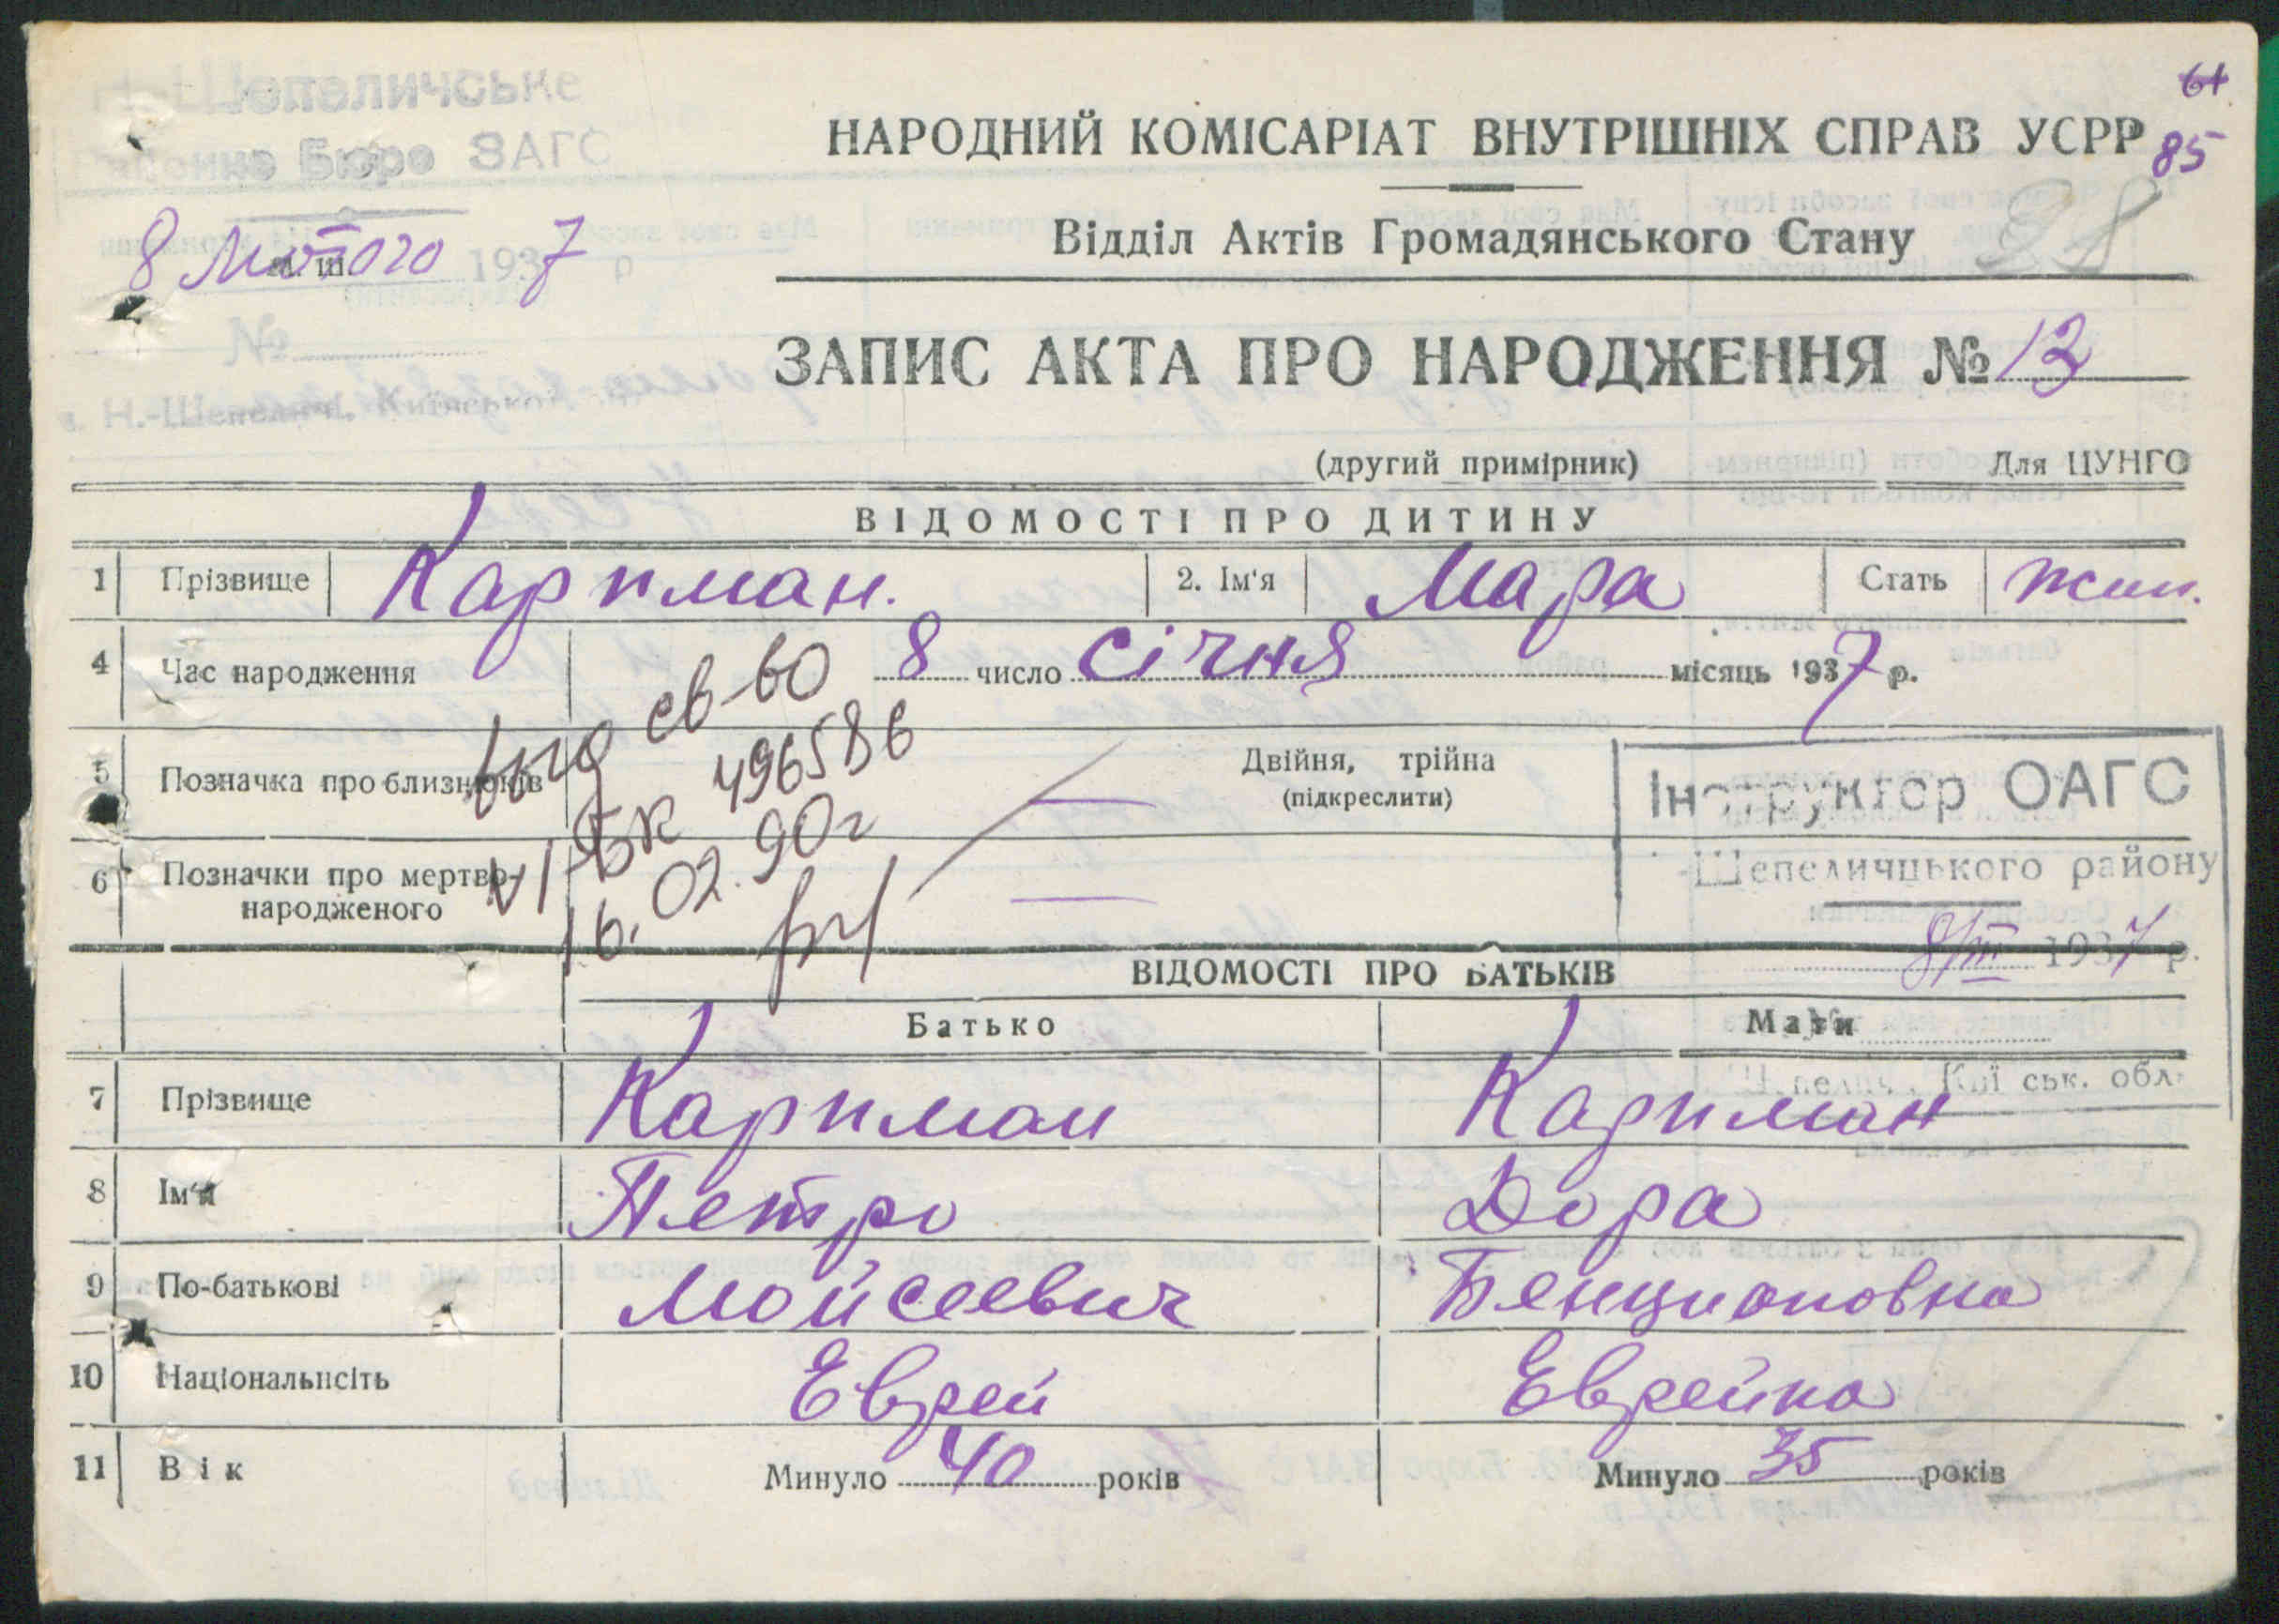 Н.-Шепеличське
Районне Бюро ЗАГС
8 Лютого 1937 р
№
с. Н.-Шепеличі, Київської
61
85
28
НАРОДНИЙ КОМІСАРІАТ ВНУТРІШНІХ СПРАВ УСРР
Відділ Актів Громадянського Стану
ЗАПИС АКТА ПРО НАРОДЖЕННЯ № 13
(другий примірник) Для ЦУНГО
ВІДОМОСТІ ПРО ДИТИНУ
1 Прізвище Карпман. 2. Ім'я Мара Стать жин.
4 Час народження 8 число січня місяць 1937 р.
выд св-во
VI-БК 496586
16.02.90г
5 Позначка про близнюків Двійня, трійна
(підкреслити)
6 Позначки про мертво-
народженого
Інструктор ОАГС
-Шепеличцького району
8/III 1937 р.
Шепелич, Київськ. обл.
ВІДОМОСТІ ПРО БАТЬКІВ
Батько Мати
7 Прізвище Карпман Карпман
8 Ім'я Петро Дора
9 По-батькові Мойсеевич Бенционовна
10 Національнсіть Еврей Еврейка
11 Вік Минуло 40 років Минуло 35 років